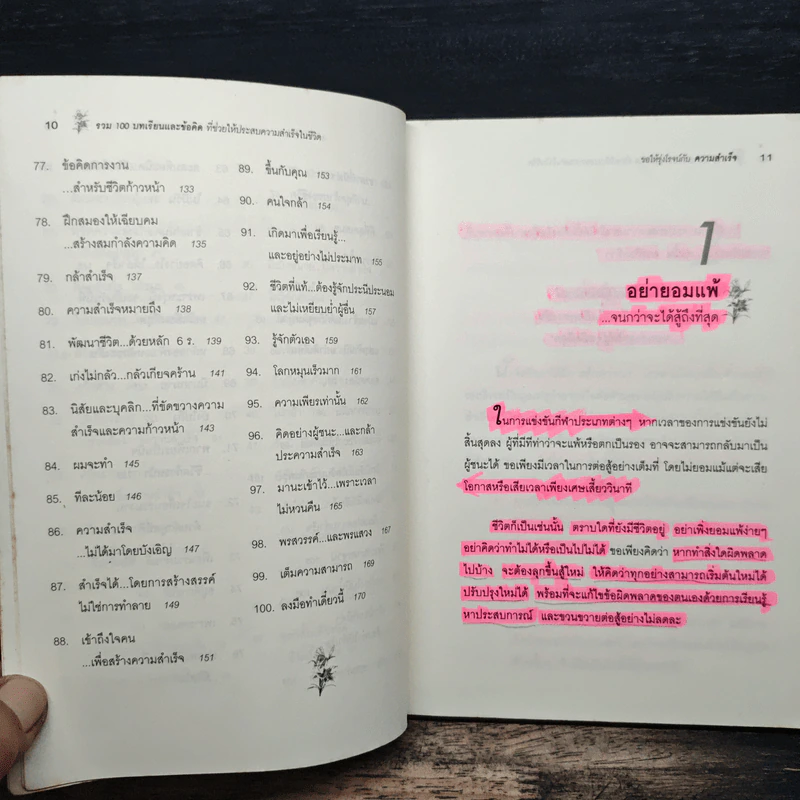 10 รวม 100 บทเรียนและข้อคิด ที่ช่วยให้ประสบความสำเร็จในชีวิต
77. ข้อคิดการงาน
...สำหรับชีวิตก้าวหน้า 133
78. ฝึกสมองให้เฉียบคม
...สร้างสมกำลังความคิด 135
79. กล้าสำเร็จ 137
80. ความสำเร็จหมายถึง 138
81. พัฒนาชีวิต...ด้วยหลัก 6 ร. 139
82. เก่งไม่กลัว...กลัวเกียจคร้าน 141
83. นิสัยและบุคลิก...ที่ขัดขวางความ
สำเร็จและความก้าวหน้า 143
84. ผมจะทำ 145
85. ทีละน้อย 146
86. ความสำเร็จ
...ไม่ได้มาโดยบังเอิญ 147
87. สำเร็จได้...โดยการสร้างสรรค์
ไม่ใช่การทำลาย 149
88. เข้าถึงใจคน
...เพื่อสร้างความสำเร็จ 151
89. ขึ้นกับคุณ 153
90. คนใจกล้า 154
91. เกิดมาเพื่อเรียนรู้...
และอยู่อย่างไม่ประมาท 155
92. ชีวิตที่แท้...ต้องรู้จักประนีประนอม
และไม่เหยียบย่ำผู้อื่น 157
93. รู้จักตัวเอง 159
94. โลกหมุนเร็วมาก 161
95. ความเพียรเท่านั้น 162
96. คิดอย่างผู้ชนะ...และกล้า
ประความสำเร็จ 163
97. มานะเข้าไว้...เพราะเวลา
ไม่หวนคืน 165
98. พรสวรรค์...และพรแสวง 167
99. เต็มความสามารถ 169
100. ลงมือทำเดี๋ยวนี้ 170
ขอให้รุ่งโรจน์กับ ความสำเร็จ 11
1
อย่ายอมแพ้
...จนกว่าจะได้สู้ถึงที่สุด
ในการแข่งขันกีฬาประเภทต่างๆ หากเวลาของการแข่งขันยังไม่
สิ้นสุดลง ผู้ที่มีทีท่าว่าจะแพ้หรือตกเป็นรอง อาจจะสามารถกลับมาเป็น
ผู้ชนะได้ ขอเพียงมีเวลาในการต่อสู้อย่างเต็มที่ โดยไม่ยอมแม้แต่จะเสีย
โอกาสหรือเสียเวลาเพียงเศษเสี้ยววินาที
ชีวิตก็เป็นเช่นนั้น ตราบใดที่ยังมีชีวิตอยู่ อย่าเพิ่งยอมแพ้ง่ายๆ
อย่าคิดว่าทำไม่ได้หรือเป็นไปไม่ได้ ขอเพียงคิดว่า หากทำสิ่งใดผิดพลาด
ไปบ้าง จะต้องลุกขึ้นสู้ใหม่ ให้คิดว่าทุกอย่างสามารถเริ่มต้นใหม่ได้
ปรับปรุงใหม่ได้ พร้อมที่จะแก้ไขข้อผิดพลาดของตนเองด้วยการเรียนรู้
หาประสบการณ์ และขวนขวายต่อสู้อย่างไม่ลดละ